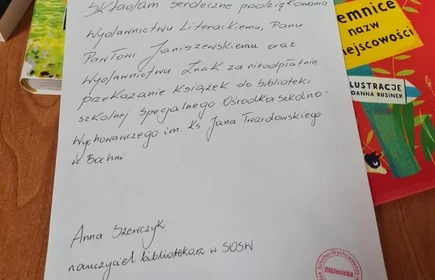 Składam serdeczne podziękowania
Wydawnictwu Literackiemu, Panu
Pawłowi Janiszewskiemu oraz
Wydawnictwu Znak za nieodpłatne
przekazanie książek do biblioteki
szkolnej Specjalnego Ośrodka Szkolno-
Wychowawczego im. Ks Jana Twardowskiego
w Bochni
Anna Szewczyk
nauczyciel bibliotekarz w SOSW
jemnice
nazw
iejscowości
ILUSTRACJE
OANNA RUSINEK
Biblioteka